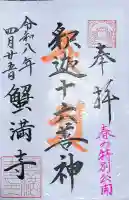 奉拝
春の特別公開
釈迦十六善神
蟹満寺
令和八年
四月廿五日